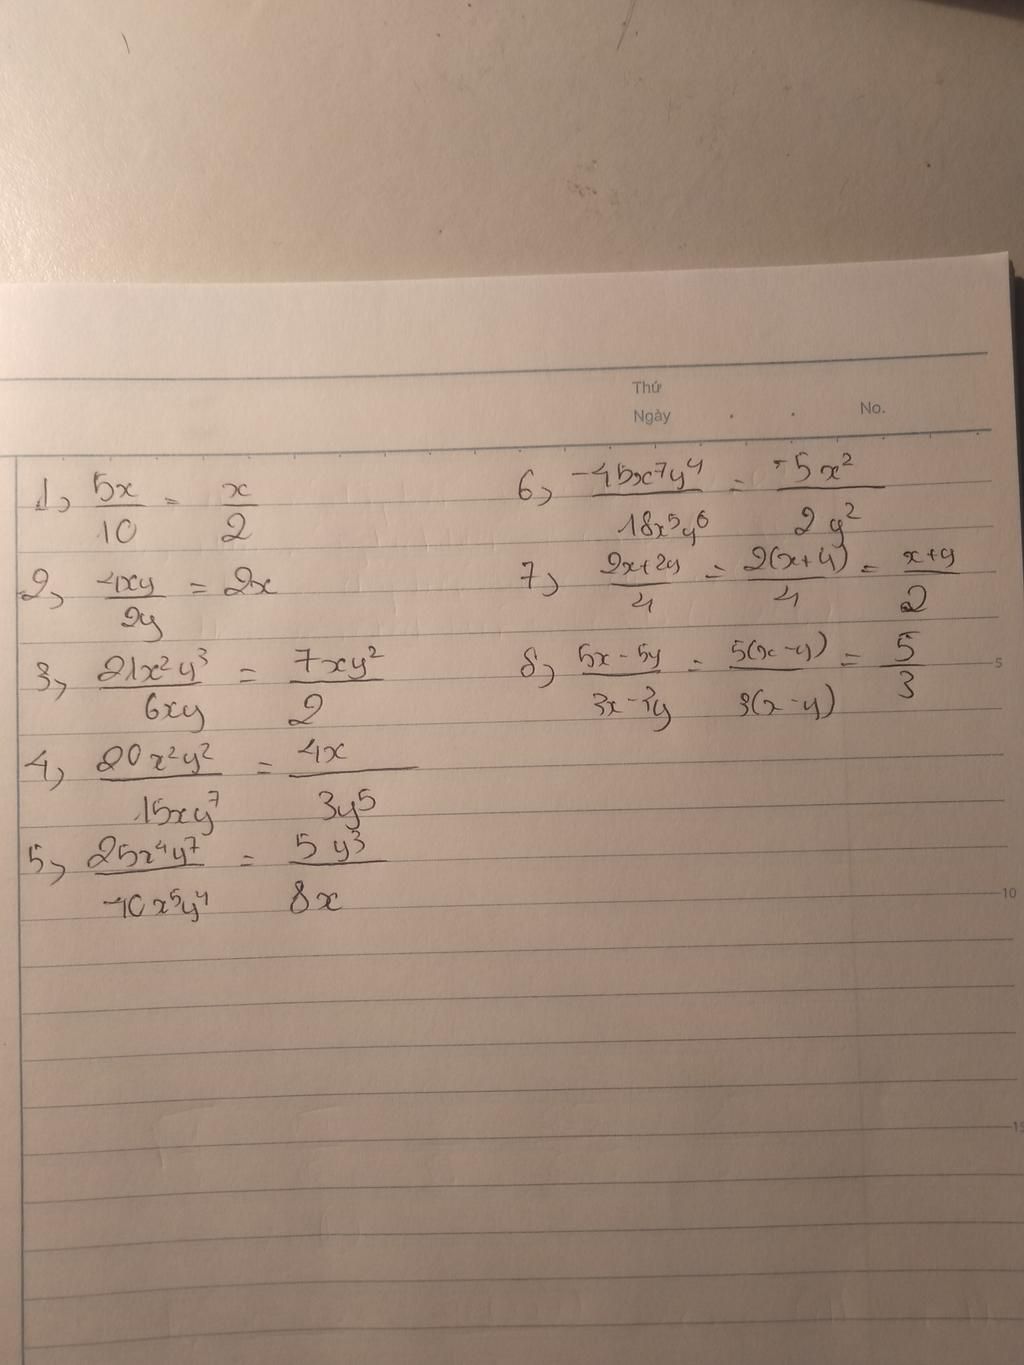 Thứ
Ngày . . No.
1, 5x/10 = x/2
2, 4xy/2y = 2x
3, 21x²y³/6xy = 7xy²/2
4, 20x²y²/15xy⁷ = 4x/3y⁵
5, 25x⁴y⁷/-10x⁵y⁴ = 5y³/8x
6, -45x⁷y⁴/18x⁵y⁶ = -5x²/2y²
7, 2x+2y/4 = 2(x+y)/4 = x+y/2
8, 5x-5y/3x-3y = 5(x-y)/3(x-y) = 5/3
5
10
15